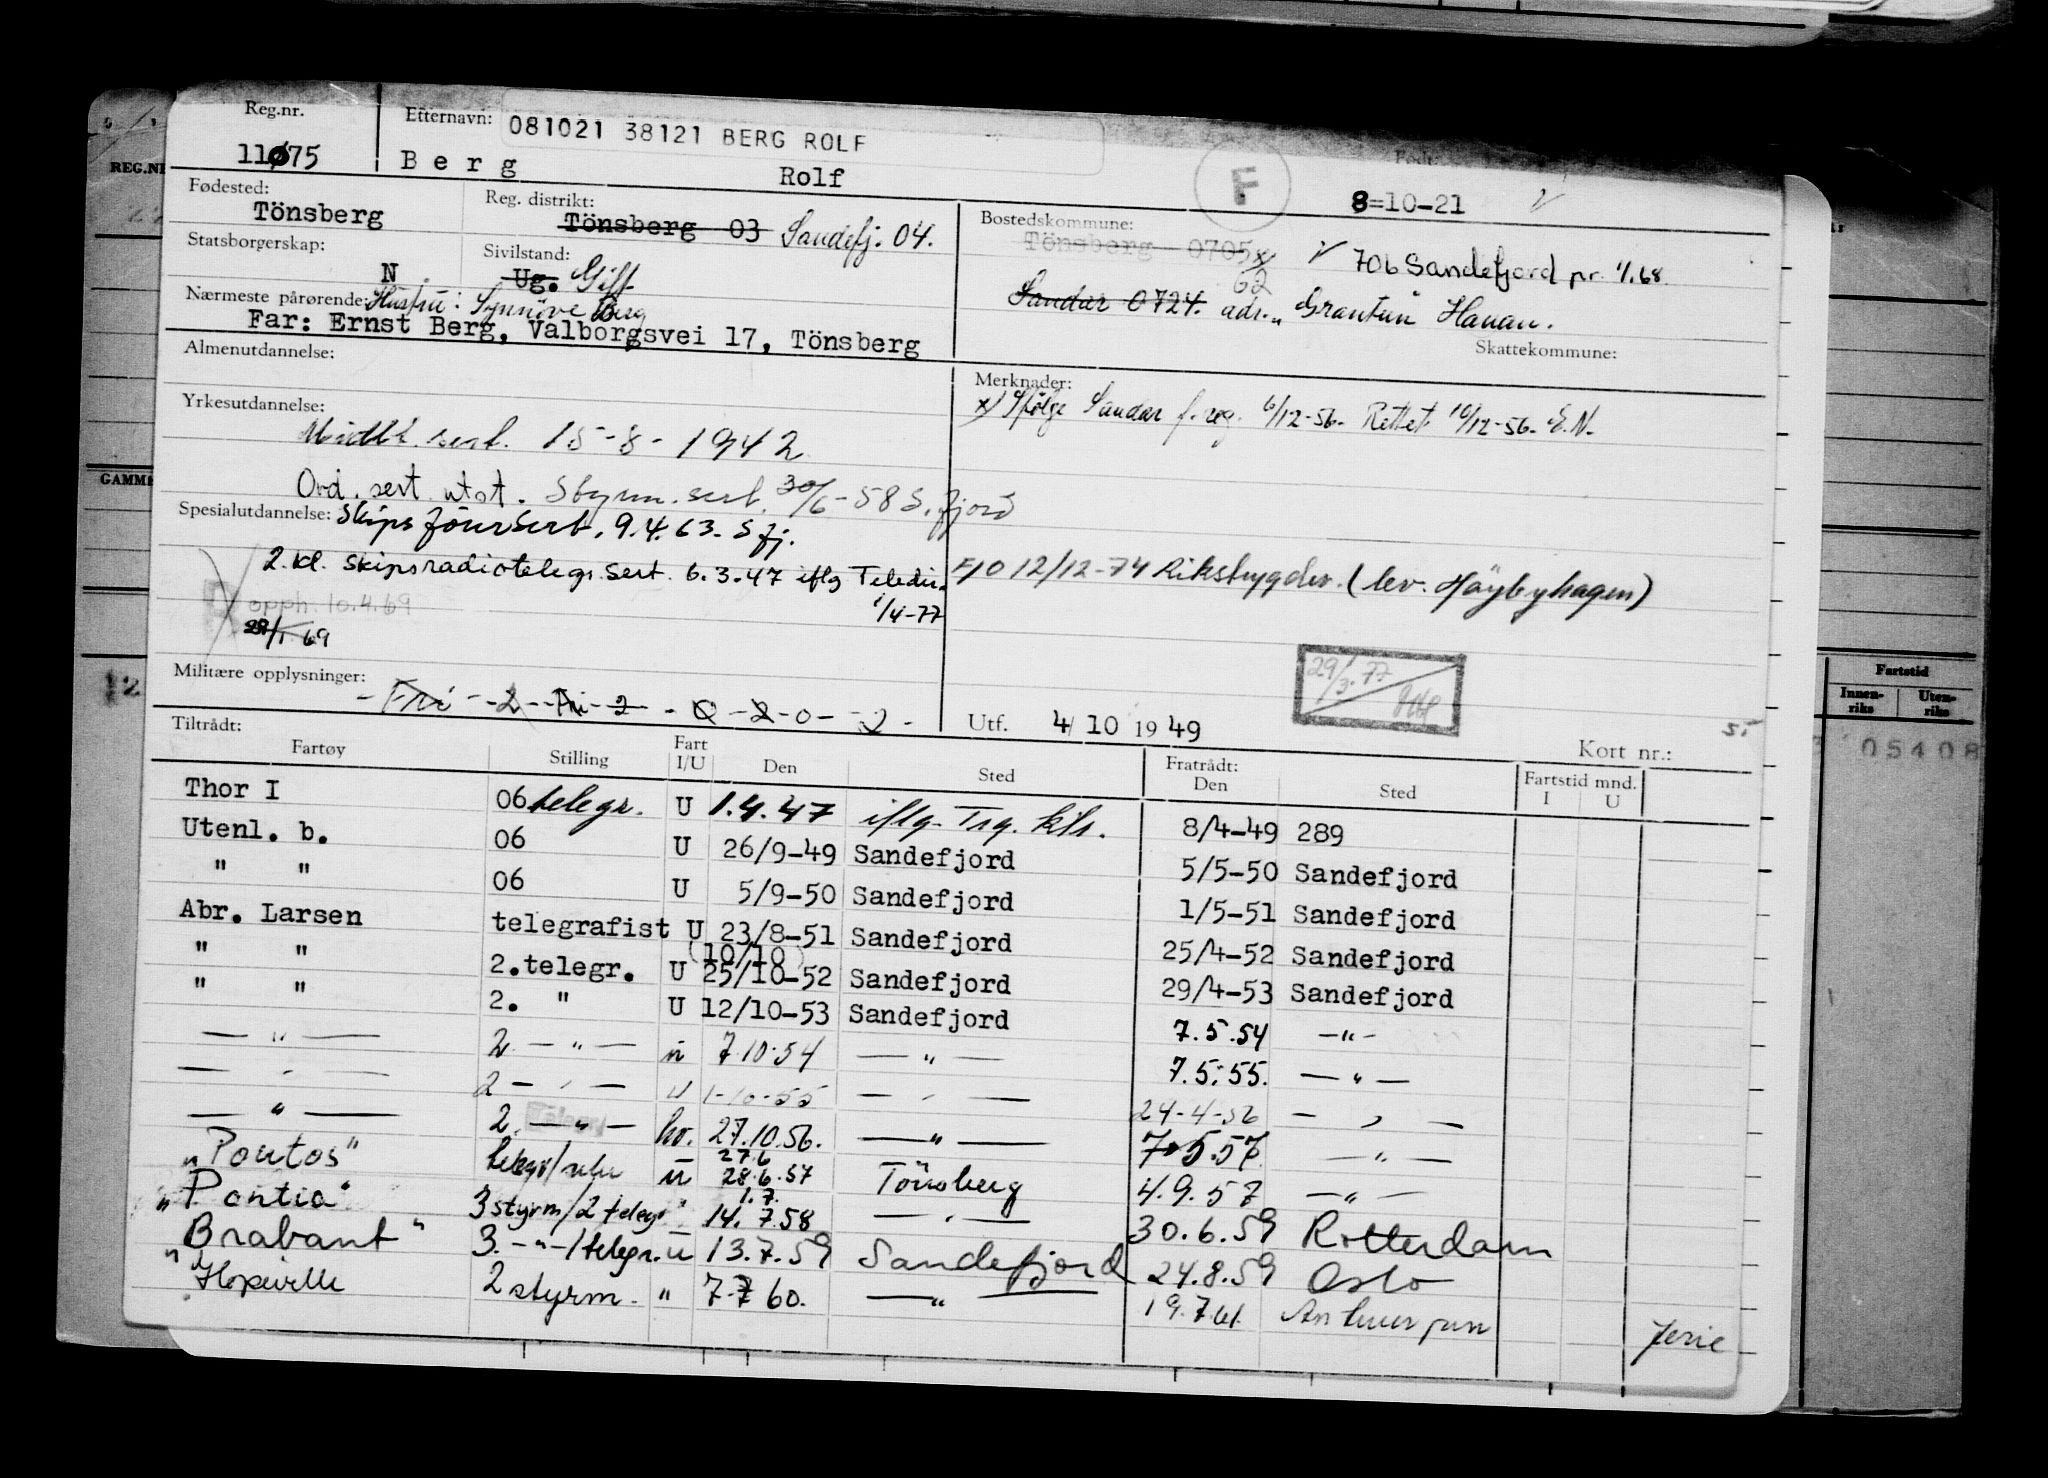 Reg.nr. Etternavn: 081021 38121 BERG ROLF Født:
11075 Berg Rolf F 8=10-21
Fødested: Tönsberg
Reg. distrikt: Tönsberg 03 Sandefj. 04.
Bostedskommune: Tönsberg 0705 x) 62 706 Sandefjord pr. 1/1.68
Sandar 0724. adr. "Grantun" Hauan.
Skattekommune:
Statsborgerskap: N
Sivilstand: Ug. Gift
Nærmeste pårørende: Hustru: Synnöve Berg
Far: Ernst Berg, Valborgsvei 17, Tönsberg
Almenutdannelse:
Merknader:
x) Ifölge Sandar f. reg. 6/12-56. Rettet 10/12-56. E.N.
Yrkesutdannelse:
Midlt. sert. 15-8-1942
Ord. sert. utst. Styrm. sert. 30/6-58 S.fjord
Spesialutdannelse: Skipsförersert. 9.4.63. Sfj.
2. kl. skipsradiotelegr. sert. 6.3.47 iflg Teledir.
1/4-77
FJO 12/12-74 Riksbygdev. (lev. Höybyhagen)
opph. 10.4.69
28/1 69
29/3.77
Militære opplysninger: - Fri - 2 - Fri - 2 - 0 - 2 - 0 - 2 -
Utf. 4/10 1949
Kort nr.:
Tiltrådt: Fratrådt: Fartstid mnd.
Fartøy Stilling Fart I/U Den Sted Den Sted I U
Thor I 06 telegr. U 1.4.47 iflg. Trg. ktr. 8/4-49 289
Utenl. b. 06 U 26/9-49 Sandefjord 5/5-50 Sandefjord
" " 06 U 5/9-50 Sandefjord 1/5-51 Sandefjord
Abr. Larsen telegrafist U 23/8-51 Sandefjord 25/4-52 Sandefjord
(10/10)
" " 2.telegr. U 25/10-52 Sandefjord 29/4-53 Sandefjord
" " 2. " U 12/10-53 Sandefjord 7.5.54 — " —
— " — 2. — " — u 7.10.54 — " — 7.5.55. — " —
— " — 2 — " — u 1-10-55 — " — 24-4-56 — " —
— " — 2. — " — hv. 27.10.56. — " — 7.5.57 — " —
27.6
"Pontos" u 28.6.57 Tönsberg 4.9.57 — " —
1.7.
"Pontia" 3 styrm/2 telegr " 14.7.58 — " — 30.6.59 Rotterdam
"Brabant" 3. — " — /telegr. u 13.7.59 Sandefjord 24.8.59 Oslo
"Hopeville 2 styrm. " 7.7 60. — " — 19.7.61. Antwerpen ferie
REG.NR
GAMME
12
Fartstid
Innen-riks Uten-riks
05408